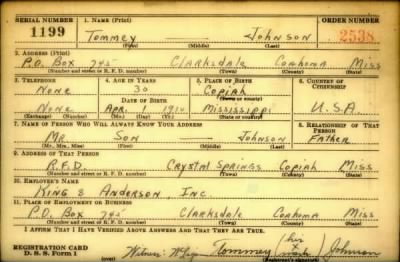 SERIAL NUMBER 1. NAME (Print) ORDER NUMBER
1199 Tommey Johnson 2538
(First) (Middle) (Last)
2. ADDRESS (Print)
P.O. Box 745 Clarksdale Coahoma Miss
(Number and street or R. F. D. number) (Town) (County) (State)
3. TELEPHONE 4. AGE IN YEARS 5. PLACE OF BIRTH 6. COUNTRY OF CITIZENSHIP
None 30 Copiah
DATE OF BIRTH (Town or county)
None Apr. 1 1910 Mississippi U.S.A.
(Exchange) (Number) (Mo.) (Day) (Yr.) (State or country)
7. NAME OF PERSON WHO WILL ALWAYS KNOW YOUR ADDRESS 8. RELATIONSHIP OF THAT PERSON
Mr. Son Johnson Father
(Mr., Mrs., Miss) (First) (Middle) (Last)
9. ADDRESS OF THAT PERSON
R.F.D. Crystal Springs Copiah Miss
(Number and street or R. F. D. number) (Town) (County) (State)
10. EMPLOYER'S NAME
King & Anderson, Inc.
11. PLACE OF EMPLOYMENT OR BUSINESS
P.O. Box 745 Clarksdale Coahoma Miss
(Number and street or R. F. D. number) (Town) (County) (State)
I AFFIRM THAT I HAVE VERIFIED ABOVE ANSWERS AND THAT THEY ARE TRUE.
REGISTRATION CARD Witness Tommey (his x mark) Johnson
D. S. S. Form 1 (Registrant's signature)